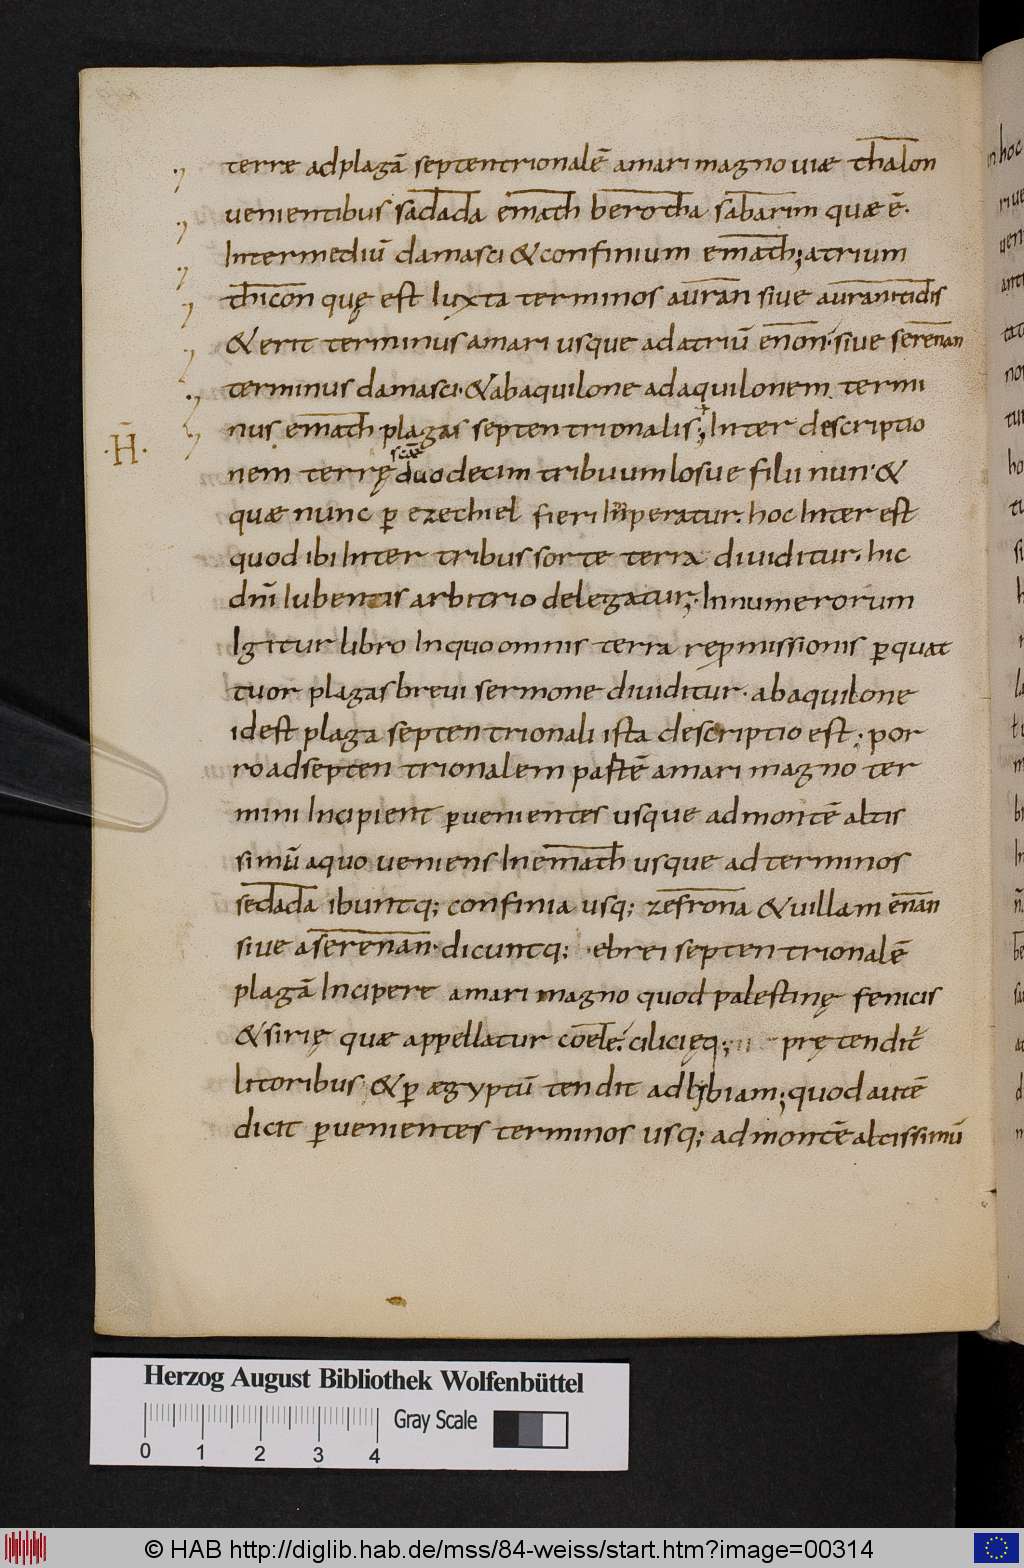 terræ adplagā septentrionalē amari magno uiæ thalon
uenientibus sadada emath berotha sabarim quæ ē·
Intermediū damasci & confinium emath; atrium
thicon quę est Iuxta terminos auran siue auranitidis
& erit terminus amari usque adatriū enon· siue serenan
terminus damasci· & abaquilone adaquilonem termi
nus emath plagas septentrionalis; Inter descriptio
·H̄·
nem terrę scāe duodecim tribuum Iosue filii nun· &
quæ nunc ꝑ ezechiel fieri Imperatur· hoc Interest
quod ibi Inter tribus sorte terra diuiditur· hic
dnī Iubentis arbitrio delegatur; Innumerorum
Igitur libro Inquo omnis terra rep̱missionis ꝑquat
tuor plagas breui sermone diuiditur· abaquilone
idest plaga septentrionali ista descriptio est; por
ro adseptentrionalem partē amari magno ter
mini Incipient ꝑuenientes usque admontē altis
simū aquo ueniens Inemath usque ad terminos
sedada ibuntq; confinia usq; zefrona & uillam enan
siue aserenan· dicuntq; ebrei septentrionalē
plagā Incipere amari magno quod palestinę fenicis
& sirię quæ appellatur coele· cilicięq; prętendit
litoribus & ꝑ ægyptū tendit adlybiam; quod autē
dicit ꝑuenientes terminos usq; admontē altissimū
in hoc
Herzog August Bibliothek Wolfenbüttel
Gray Scale
0 1 2 3 4
© HAB http://diglib.hab.de/mss/84-weiss/start.htm?image=00314